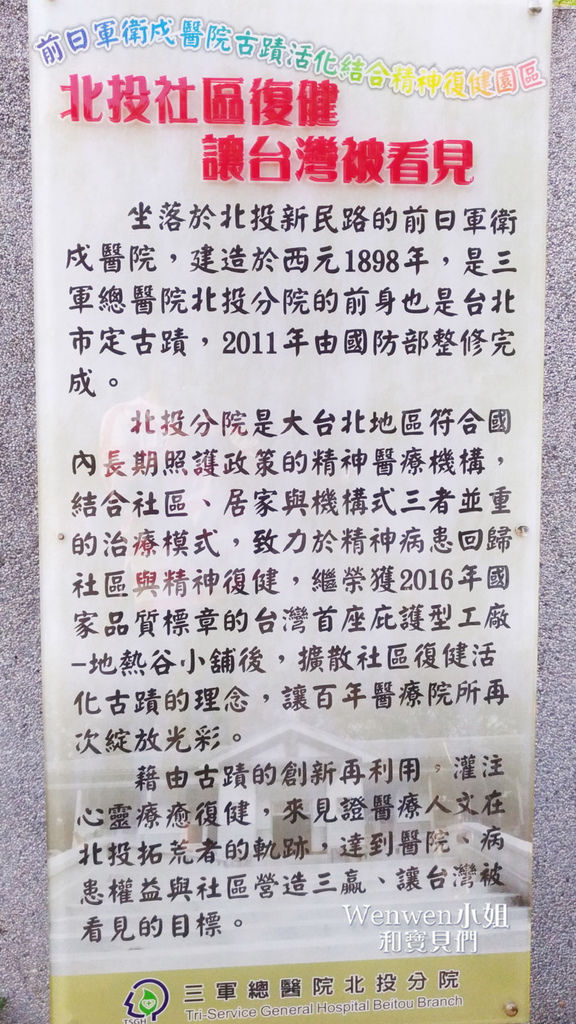 前日軍衛戍醫院古蹟活化結合精神復健園區
北投社區復健
讓台灣被看見
坐落於北投新民路的前日軍衛
戍醫院，建造於西元1898年，是三
軍總醫院北投分院的前身也是台北
市定古蹟，2011年由國防部整修完
成。
北投分院是大台北地區符合國
內長期照護政策的精神醫療機構，
結合社區、居家與機構式三者並重
的治療模式，致力於精神病患回歸
社區與精神復健，繼榮獲2016年國
家品質標章的台灣首座庇護型工廠
-地熱谷小舖後，擴散社區復健活
化古蹟的理念，讓百年醫療院所再
次綻放光彩。
藉由古蹟的創新再利用，灌注
心靈療癒復健，來見證醫療人文在
北投拓荒者的軌跡，達到醫院、病
患權益與社區營造三贏、讓台灣被
看見的目標。
Wenwen小姐
和寶貝們
TSGH
三軍總醫院北投分院
Tri-Service General Hospital Beitou Branch